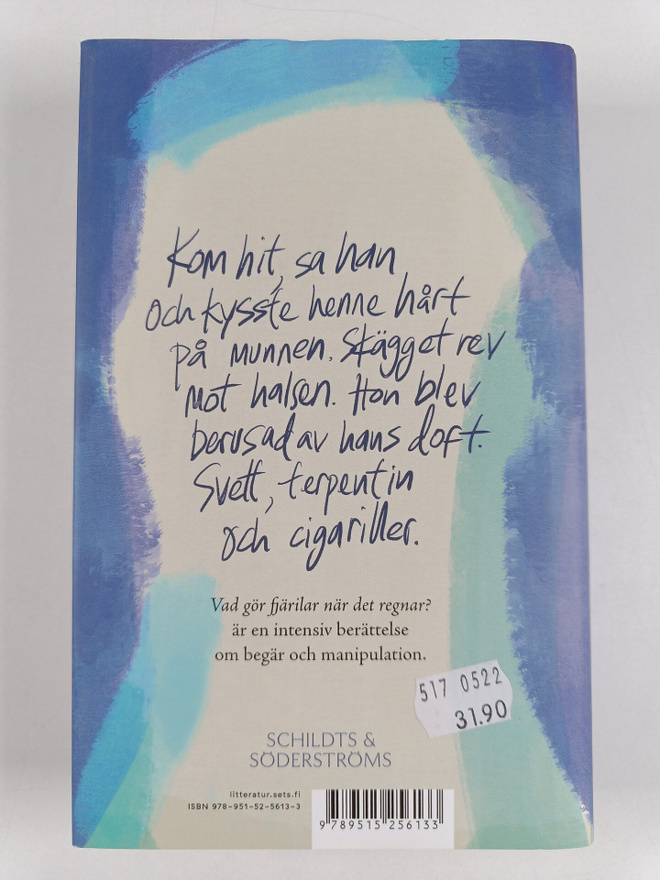 Kom hit, sa han
och kysste henne hårt
på munnen. Skägget rev
mot halsen. Hon blev
berusad av hans doft.
Svett, terpentin
och cigariller.
Vad gör fjärilar när det regnar?
är en intensiv berättelse
om begär och manipulation.
517 0522
31.90
SCHILDTS &
SÖDERSTRÖMS
litteratur.sets.fi
ISBN 978-951-52-5613-3
9 789515 256133